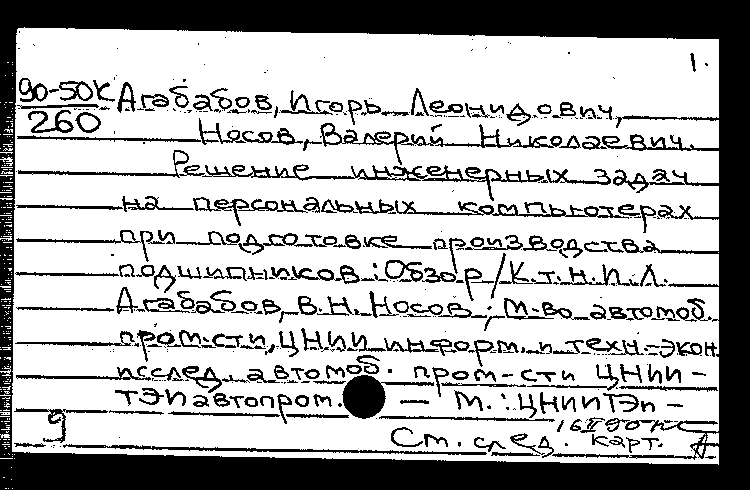 1.
90-50К Агабабов, Игорь Леонидович,
260 Носов, Валерий Николаевич.
Решение инженерных задач
на персональных компьютерах
при подготовке производства
подшипников : Обзор / К.т.н. И.Л.
Агабабов, В.Н. Носов ; М-во автомоб.
пром-сти, ЦНИИ информ. и техн.-экон.
исслед. автомоб. пром-сти ЦНИИ-
ТЭИавтопром. — М. : ЦНИИТЭИ-
9
См. след. карт.